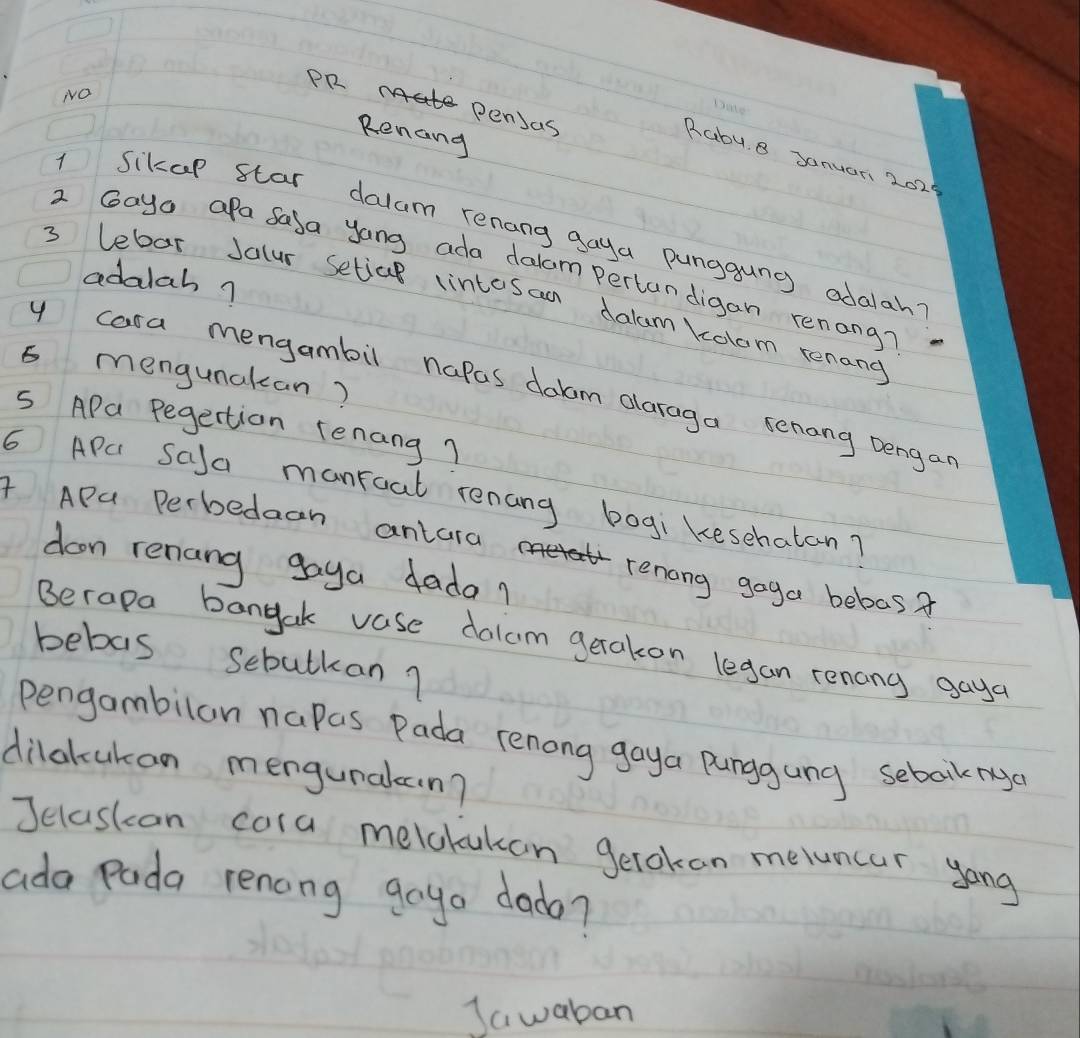 NO
PR Mate Penjas
Date
Rabu. 8 Januari 2025
Renang
1 Sikap star dalam renang gaya punggung adalah?
2 Gaya apa saja yang ada dalam pertandigan renang?
3 lebar jalur setiap lintasan dalam kolam renang
adalah?
4 cara mengambil napas dalam olaraga renang Dengan
6 mengunakan?
5 Apa pegertian renang?
6 APa saja manfaat renang bagi kesehatan?
7 APa Perbedaan antara renang gaya bebas
dan renang gaya dada?
Berapa bangak vase dalam gerakan legan renang gaya
bebas sebutkan?
Pengambilan napas pada renang gaya punggung sebaiknya
dilakukan mengunakan?
Jelaskan cara melakukan gerakan meluncur yang
ada pada renang gaya dada?
Jawaban